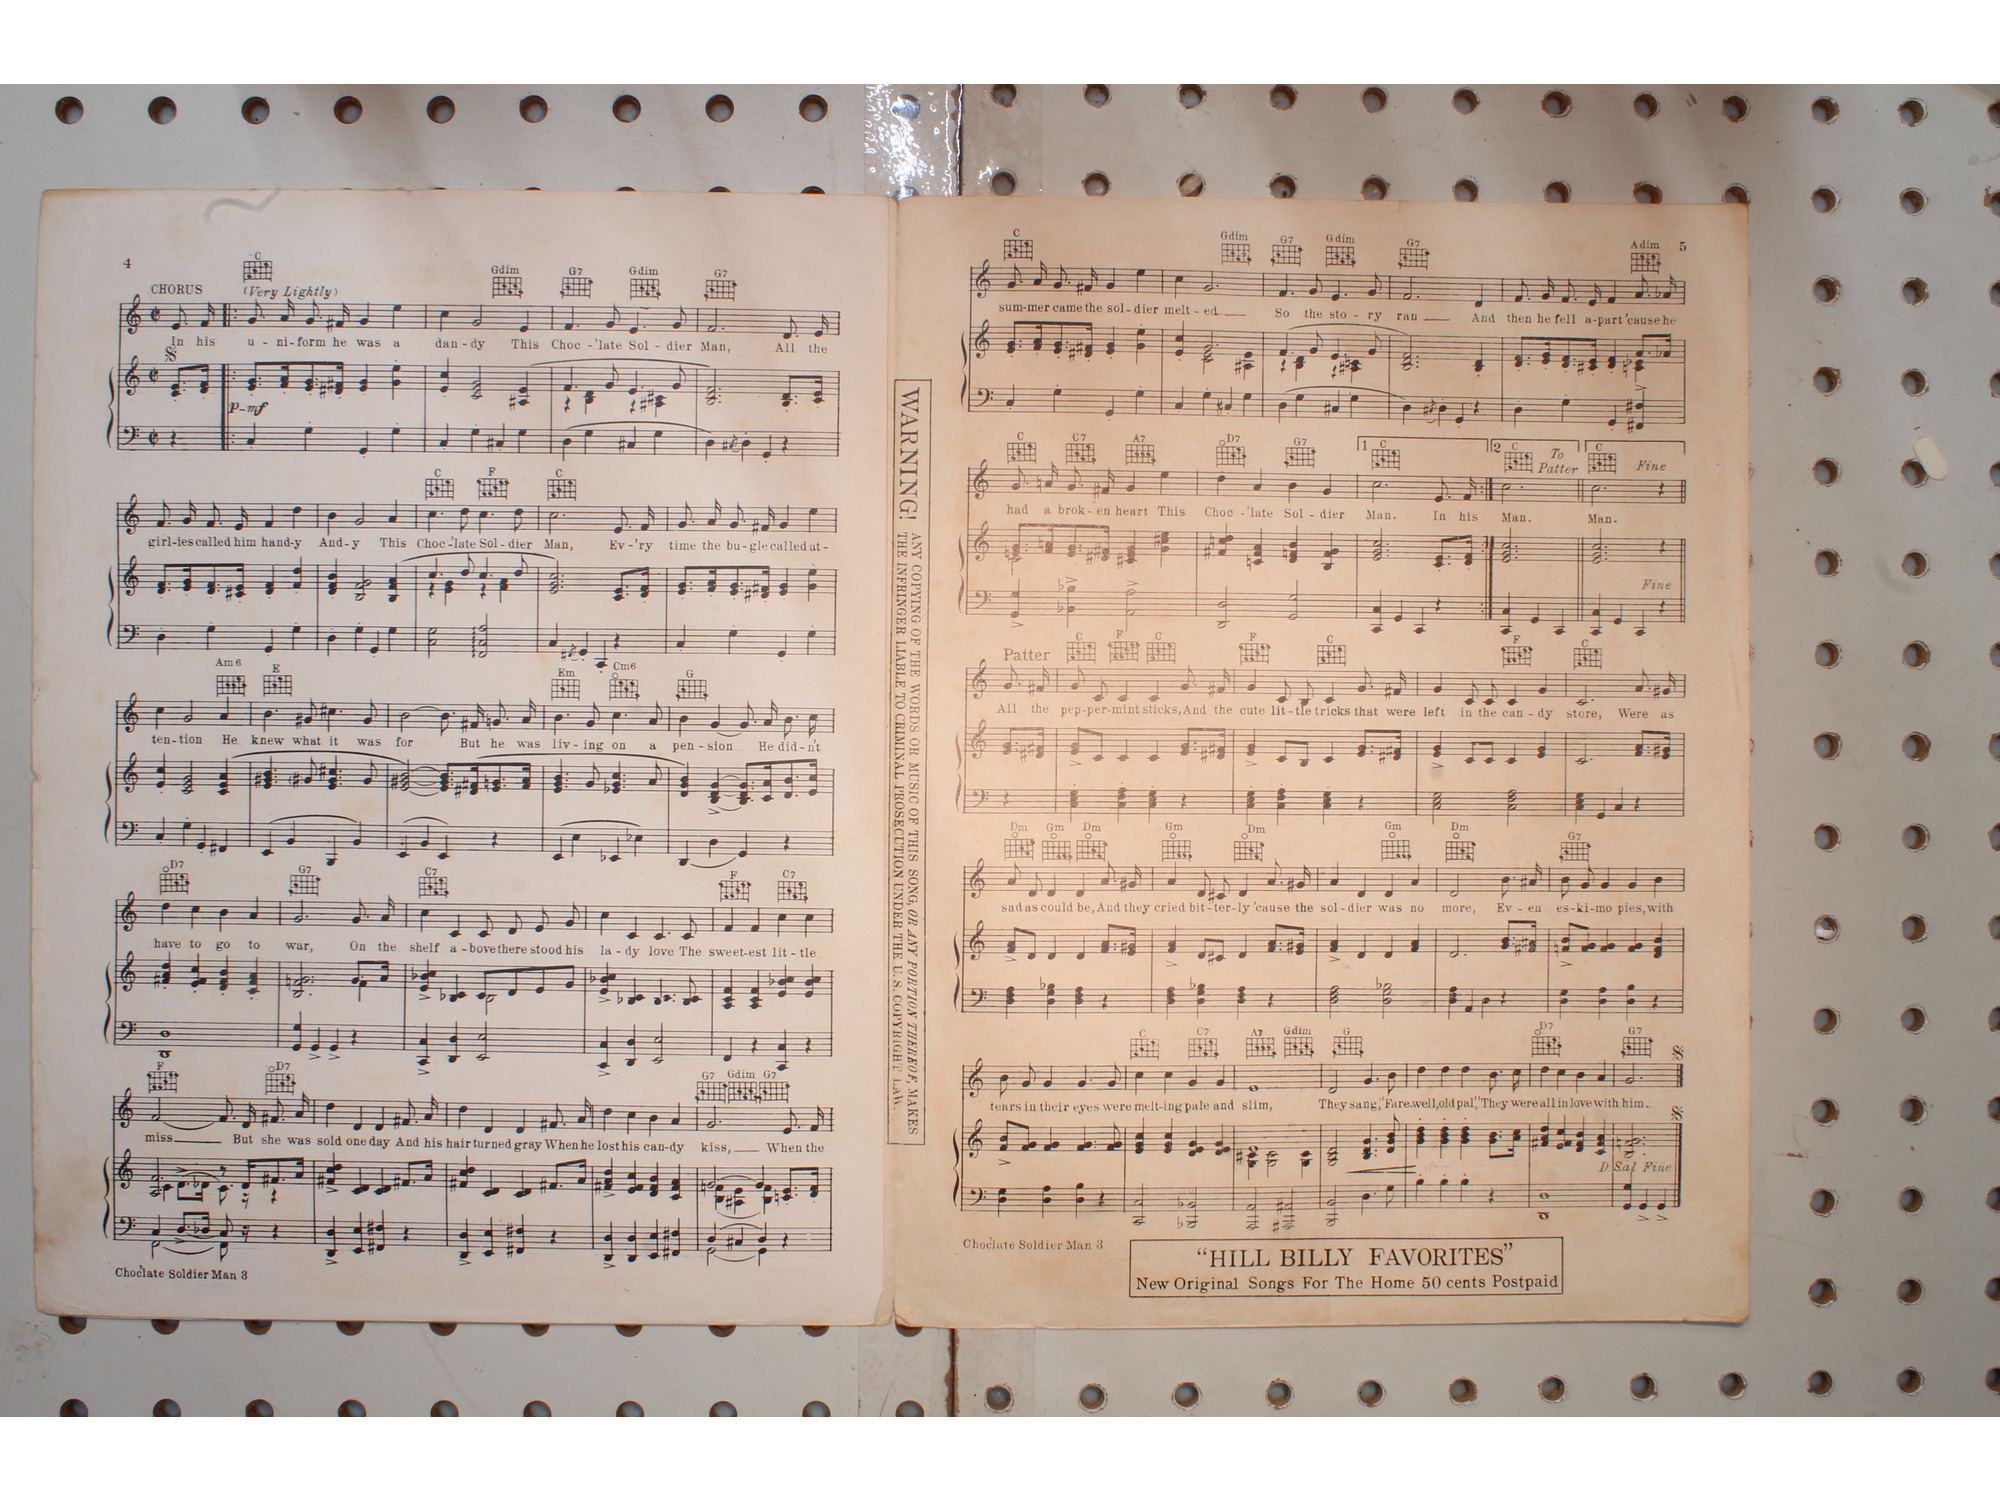 4
CHORUS
(Very Lightly)
C Gdim G7 Gdim G7
In his u - ni - form he was a dan - dy This Choc -'late Sol - dier Man, All the
p-mf
C F C
girl-ies called him hand-y And-y This Choc-'late Sol-dier Man, Ev-'ry time the bu-gle called at-
Am6 E Em Cm6 G
ten-tion He knew what it was for But he was liv-ing on a pen-sion He did-n't
D7 G7 C7 F C7
have to go to war, On the shelf a-bove there stood his la-dy love The sweet-est lit-tle
F D7 G7 Gdim G7
miss But she was sold one day And his hair turned gray When he lost his can-dy kiss, When the
Choc'late Soldier Man 3
WARNING! ANY COPYING OF THE WORDS OR MUSIC OF THIS SONG, OR ANY PORTION THEREOF, MAKES
THE INFRINGER LIABLE TO CRIMINAL PROSECUTION UNDER THE U. S. COPYRIGHT LAW.
5
C Gdim G7 Gdim G7 Adim
sum-mer came the sol-dier melt-ed So the sto-ry ran And then he fell a-part 'cause he
C C7 A7 D7 G7 1 C 2 C To Patter C Fine
had a brok-en heart This Choc-'late Sol-dier Man. In his Man. Man.
Fine
Patter
C F C F C F C
All the pep-per-mint sticks, And the cute lit-tle tricks that were left in the can-dy store, Were as
Dm Gm Dm Gm Dm Gm Dm G7
sad as could be, And they cried bit-ter-ly 'cause the sol-dier was no more, Ev-en es-ki-mo pies, with
C C7 A7 Gdim G D7 G7
tears in their eyes were melt-ing pale and slim, They sang, "Farewell, old pal," They were all in love with him.
D.S. al Fine
Choc'late Soldier Man 3
"HILL BILLY FAVORITES"
New Original Songs For The Home 50 cents Postpaid